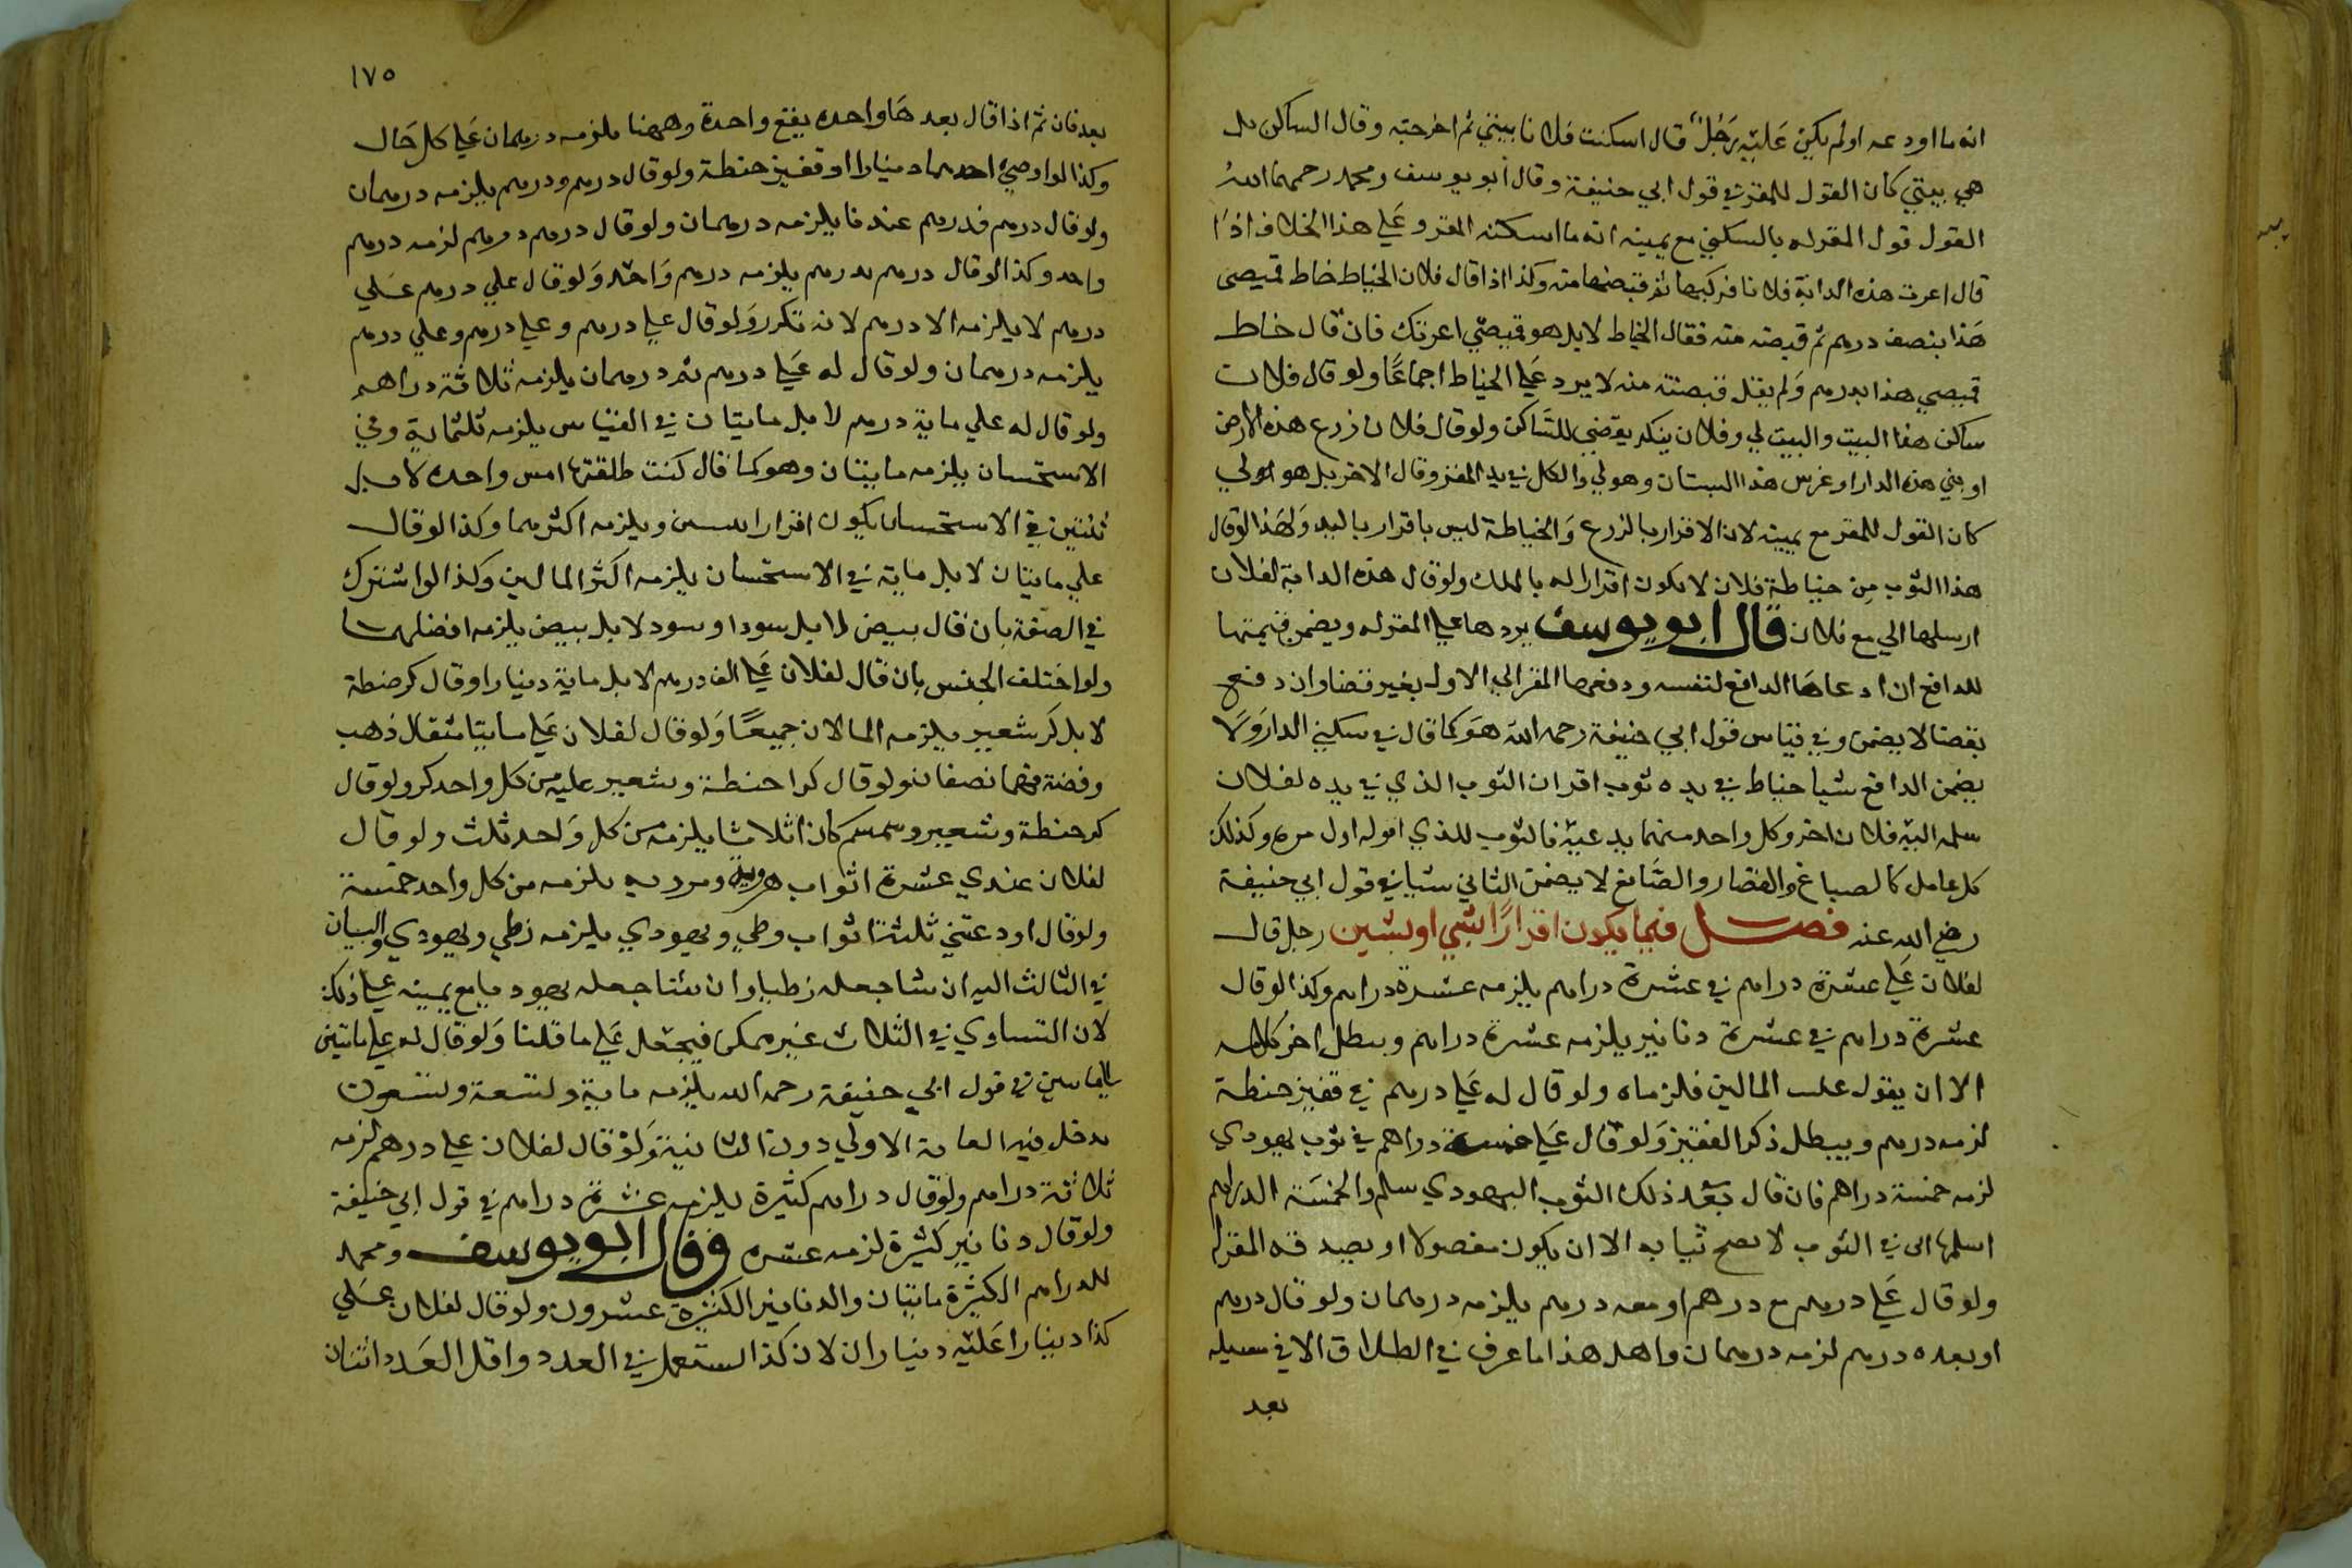 انه ما اودعه او لم يكن عليه رجل قال اسكنت فلانا بيتي ثم اخرجته وقال الساكن بل
هي بيتي كان القول للمقر في قول ابي حنيفة وقال ابو يوسف ومحمد رحمهما الله
القول قول المقر له بالسكني مع يمينه انه ما اسكنه المقر وعلي هذا الخلاف اذا
قال اعرت هذه الدابة فلانا فركبها ثم قبضتها منه وكذا اذا قال فلان الخياط خاط قميصي
هذا بنصف درهم ثم قبضته منه فقال الخياط لا بل هو قميصي اعرتك فان قال خاط
قميصي هذا بدرهم ولم يقل قبضته منه لا يرد علي الخياط اجماعا ولو قال فلان
ساكن هذا البيت والبيت لي وفلان ينكر يقضي للساكن ولو قال فلان زرع هذه الارض
او بني هذه الدار او غرس هذا البستان وهو لي والكل في يد المقر وقال الاخر بل هو لي
كان القول للمقر مع يمينه لان الاقرار بالزرع والخياطة ليس باقرار باليد ولهذا لو قال
هذا الثوب من خياطة فلان لا يكون اقرارا له بالملك ولو قال هذه الدابة لفلان
ارسلها الي مع فلان قال ابو يوسف يردها علي المقر له ويضمن قيمتها
للدافع ان ادعاها الدافع لنفسه ودفعها المقر الي الاول بغير قضا وان دفع
بقضا لا يضمن وفي قياس قول ابي حنيفة رحمه الله هو كما قال في سكني الدار ولا
يضمن الدافع شيا خياط في يده ثوب اقر ان الثوب الذي في يده لفلان
سلمه اليه فلان اخر وكل واحد منهما يدعيه فالثوب للذي اقر له اول مره وكذلك
كل عامل كالصباغ والقصار والصائغ لا يضمن الثاني شيا في قول ابي حنيفة
رضي الله عنه فصل فيما يكون اقرارا بشي او بشين رجل قال
لفلان علي عشرة دراهم في عشرة دراهم يلزمه عشرة دراهم وكذا لو قال
عشرة دراهم في عشرة دنانير يلزمه عشرة دراهم وبطل اخر كلامه
الا ان يقول المالين فلزماه ولو قال له علي درهم في قفيز حنطة
لزمه درهم ويبطل ذكر القفيز ولو قال علي خمسة دراهم في ثوب يهودي
لزمه خمسة دراهم فان قال بعد ذلك الثوب اليهودي سلم والخمسة الدراهم
اسلمها الي في الثوب لا يصح ثيابه الا ان يكون مفصولا او يصدقه المقر له
ولو قال علي درهم مع درهم او معه درهم يلزمه درهمان ولو قال درهم
او بعده درهم لزمه درهمان واهل هذا ما عرف في الطلاق الا في
بعد
١٧٥
بعد فان ثم اذا قال بعدها واحده يقع واحدة وههنا يلزمه درهمان علي كل حال
وكذا لو اوصي احدهما دينارا او قفيز حنطة ولو قال درهم ودرهم يلزمه درهمان
ولو قال درهم فدرهم عندنا يلزمه درهمان ولو قال درهم درهم لزمه درهم
واحد وكذا لو قال درهم بدرهم يلزمه درهم واحد ولو قال علي درهم علي
درهم لا يلزمه الا درهم لانه تكرر ولو قال علي درهم وعلي درهم وعلي درهم
يلزمه درهمان ولو قال له علي درهم ثم درهمان يلزمه ثلاثة دراهم
ولو قال له علي ماية درهم لا بل مايتان في القياس يلزمه ثلثماية وفي
الاستحسان يلزمه مايتان وهو كما قال كنت طلقتها امس واحده لا بل
ثنتين في الاستحسان يكون اقرارا ويلزمه اكثرهما وكذا لو قال
علي مايتان لا بل ماية في الاستحسان يلزمه اكثر المالين وكذا لو اشترك
في الصفة بان قال بيض لا بل سود او سود لا بل بيض يلزمه افضلهما
ولو اختلف الجنس بان قال لفلان علي الف درهم لا بل ماية دينار او قال كر حنطة
لا بل كر شعير يلزمه المالان جميعا ولو قال لفلان علي مايتا مثقال ذهب
وفضة فهما نصفان ولو قال كرا حنطة وشعير عليه من كل واحد كر ولو قال
كر حنطة وشعير وسمسم كان اثلاثا يلزمه من كل واحد ثلث ولو قال
لفلان عندي عشرة اثواب هروية ومروية يلزمه من كل واحد خمسة
ولو قال اودعتني ثلثة اثواب وطي ويهودي يلزمه زطي ويهودي والبيان
في الثالث اليه ان شا جعله زطيا وان شا جعله يهوديا مع يمينه علي ذلك
لان التساوي في الثلاث غير ممكن فيجعل علي ما قلنا ولو قال له علي مايتين
في قول ابي حنيفة رحمه الله يلزمه ماية وتسعة وتسعون
يدخل فيه الغاية الاولي دون الثانية ولو قال لفلان علي درهم لزمه
ثلاثة دراهم ولو قال دراهم كثيرة يلزمه عشرة دراهم في قول ابي حنيفة
ولو قال دنانير كثيرة لزمه عشره وقال ابو يوسف ومحمد
للدراهم الكثيرة مايتان والدنانير الكثيرة عشرون ولو قال لفلان علي
كذا دينارا عليه ديناران لان كذا يستعمل في العدد واقل العدد اثنان